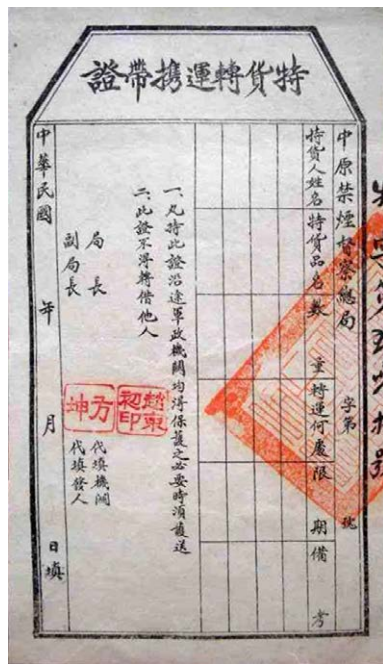 特貨轉運携帶證
中原禁煙督察總局　字第　號
持貨人姓名
特貨品名
數　量
轉運何處
限　期
備　考
一、凡持此證沿途軍政機關均得保護之必要時須護送
二、此證不得轉借他人
局長
副局長
趙東初印
方坤
代填機關
代填發人
中華民國　年　月　日填